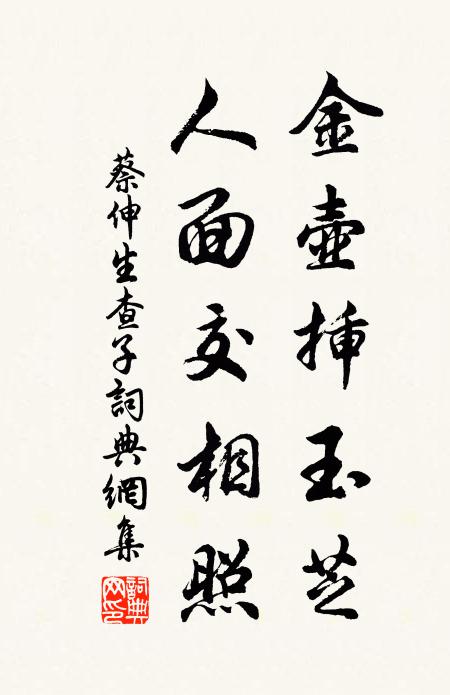 金壺挿玉芝
人面交相照
蔡伸生查子詞典網集
詞典网印